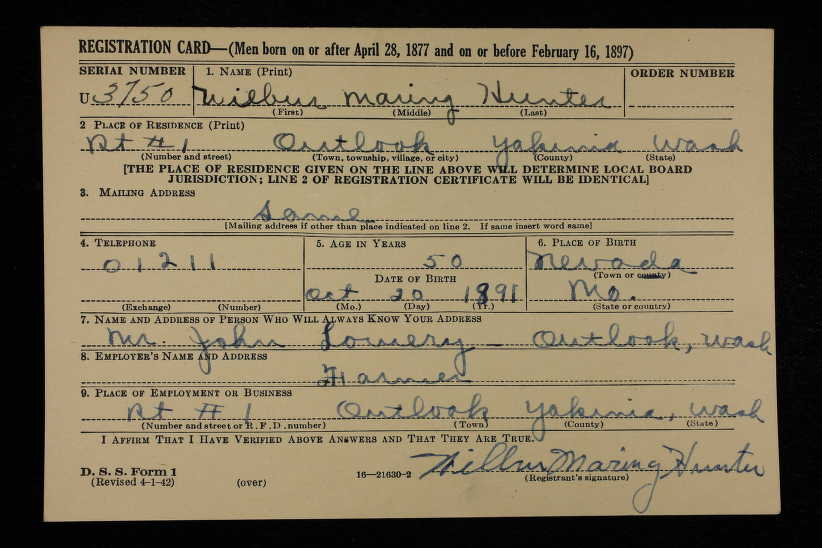 REGISTRATION CARD—(Men born on or after April 28, 1877 and on or before February 16, 1897)
SERIAL NUMBER 1. NAME (Print) ORDER NUMBER
U 3750 Wilbur Maring Hunter
(First) (Middle) (Last)
2 PLACE OF RESIDENCE (Print)
Rt # 1 Outlook Yakima Wash
(Number and street) (Town, township, village, or city) (County) (State)
[THE PLACE OF RESIDENCE GIVEN ON THE LINE ABOVE WILL DETERMINE LOCAL BOARD
JURISDICTION; LINE 2 OF REGISTRATION CERTIFICATE WILL BE IDENTICAL]
3. MAILING ADDRESS
Same
[Mailing address if other than place indicated on line 2. If same insert word same]
4. TELEPHONE 5. AGE IN YEARS 6. PLACE OF BIRTH
01211 50 Nevada
(Town or county)
DATE OF BIRTH
Oct 20 1891 Mo.
(Exchange) (Number) (Mo.) (Day) (Yr.) (State or country)
7. NAME AND ADDRESS OF PERSON WHO WILL ALWAYS KNOW YOUR ADDRESS
Mr. John Lowery – Outlook, Wash
8. EMPLOYER'S NAME AND ADDRESS
Farmer
9. PLACE OF EMPLOYMENT OR BUSINESS
Rt # 1 Outlook Yakima, Wash
(Number and street or R.F.D. number) (Town) (County) (State)
I AFFIRM THAT I HAVE VERIFIED ABOVE ANSWERS AND THAT THEY ARE TRUE.
D. S. S. Form 1
(Revised 4-1-42) (over) 16—21630-2 Wilbur Maring Hunter
(Registrant's signature)